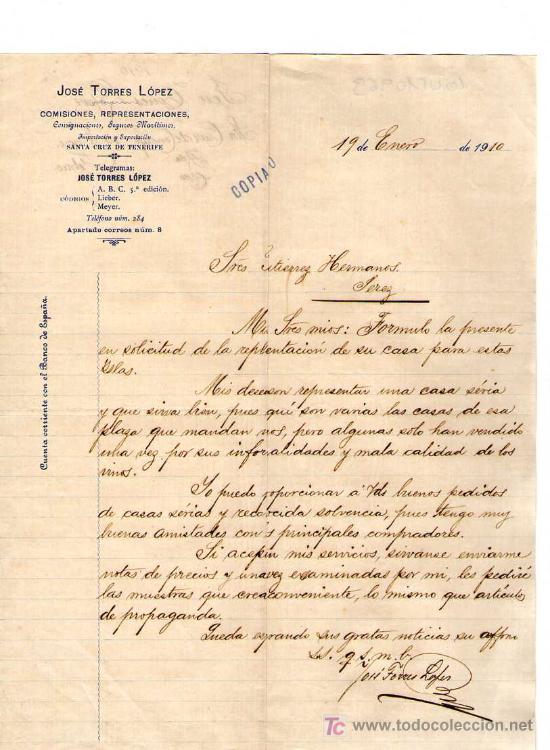 JOSÉ TORRES LÓPEZ
COMISIONES, REPRESENTACIONES,
Consignaciones, Seguros Marítimos,
Importación y Exportación
SANTA CRUZ DE TENERIFE
Telegramas:
JOSÉ TORRES LÓPEZ
CÓDIGOS
A. B. C. 5.ª edición.
Lieber.
Meyer.
Teléfono núm. 284
Apartado correos núm. 8
Cuenta corriente con el Banco de España.
COPIAD
19 de Enero de 1910
Sres Gutierrez Hermanos.
Jerez
Muy Sres mios: Formulo la presente
en solicitud de la reprentación de su casa para estas
Islas.
Mis deceson representar una casa séria
y que sirva bien, pues qué son varias las casas de esa
plaza que mandan nos, pero algunas solo han vendido
una vez por sus inforalidades y mala calidad de los
vinos.
Yo puedo poporcionar á Vds buenos pedidos
de casas sérias y recorcida solvencia, pues tengo muy
buenas amistades con's principales compradores.
Si acepin mis servicios, sirvanse enviarme
notas de precios y unavez examinadas por mi, les pediré
las muestras que creaconveniente, lo mismo que artículos
de propaganda.
Queda esprando sus gratas noticias su affmo
s.s. q. s. m. b.
José Torres López
TC www.todocoleccion.net